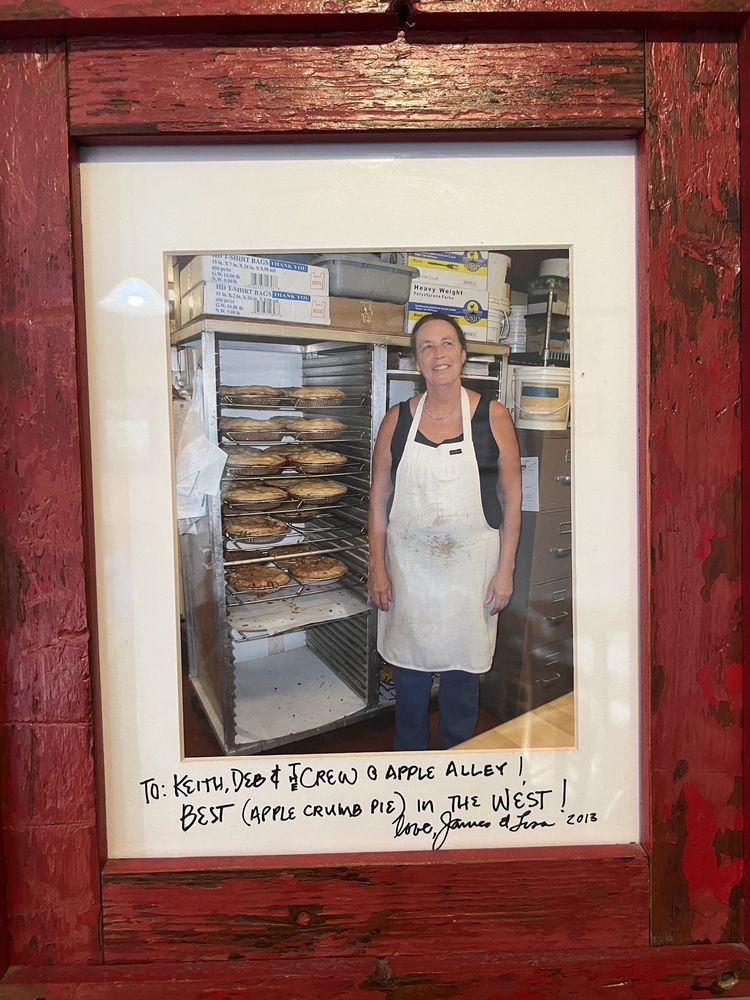 HD T-SHIRT BAGS THANK YOU
HD T-SHIRT BAGS THANK YOU
Heavy Weight
Polystyrene Forks
TO: KEITH, DEB & THE CREW @ APPLE ALLEY!
BEST (APPLE CRUMB PIE) IN THE WEST!
love, James & Lisa 2013